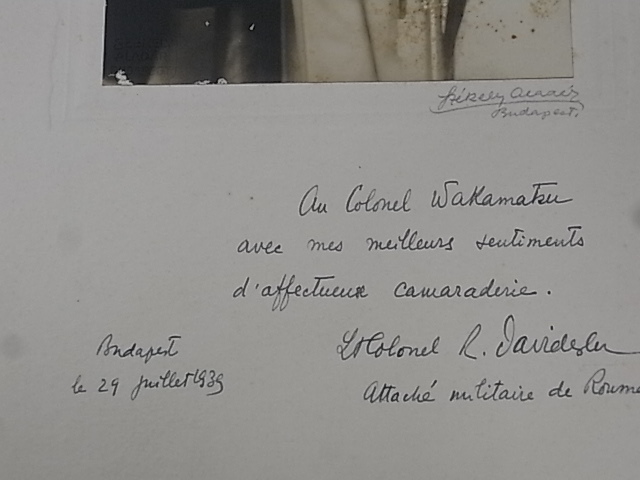 Székely Aladár
Budapest
Au Colonel Wakamatsu
avec mes meilleurs sentiments
d'affectueuse camaraderie.
Lt Colonel R. Davidescu
Attaché militaire de Roum
Budapest
le 29 juillet 1939